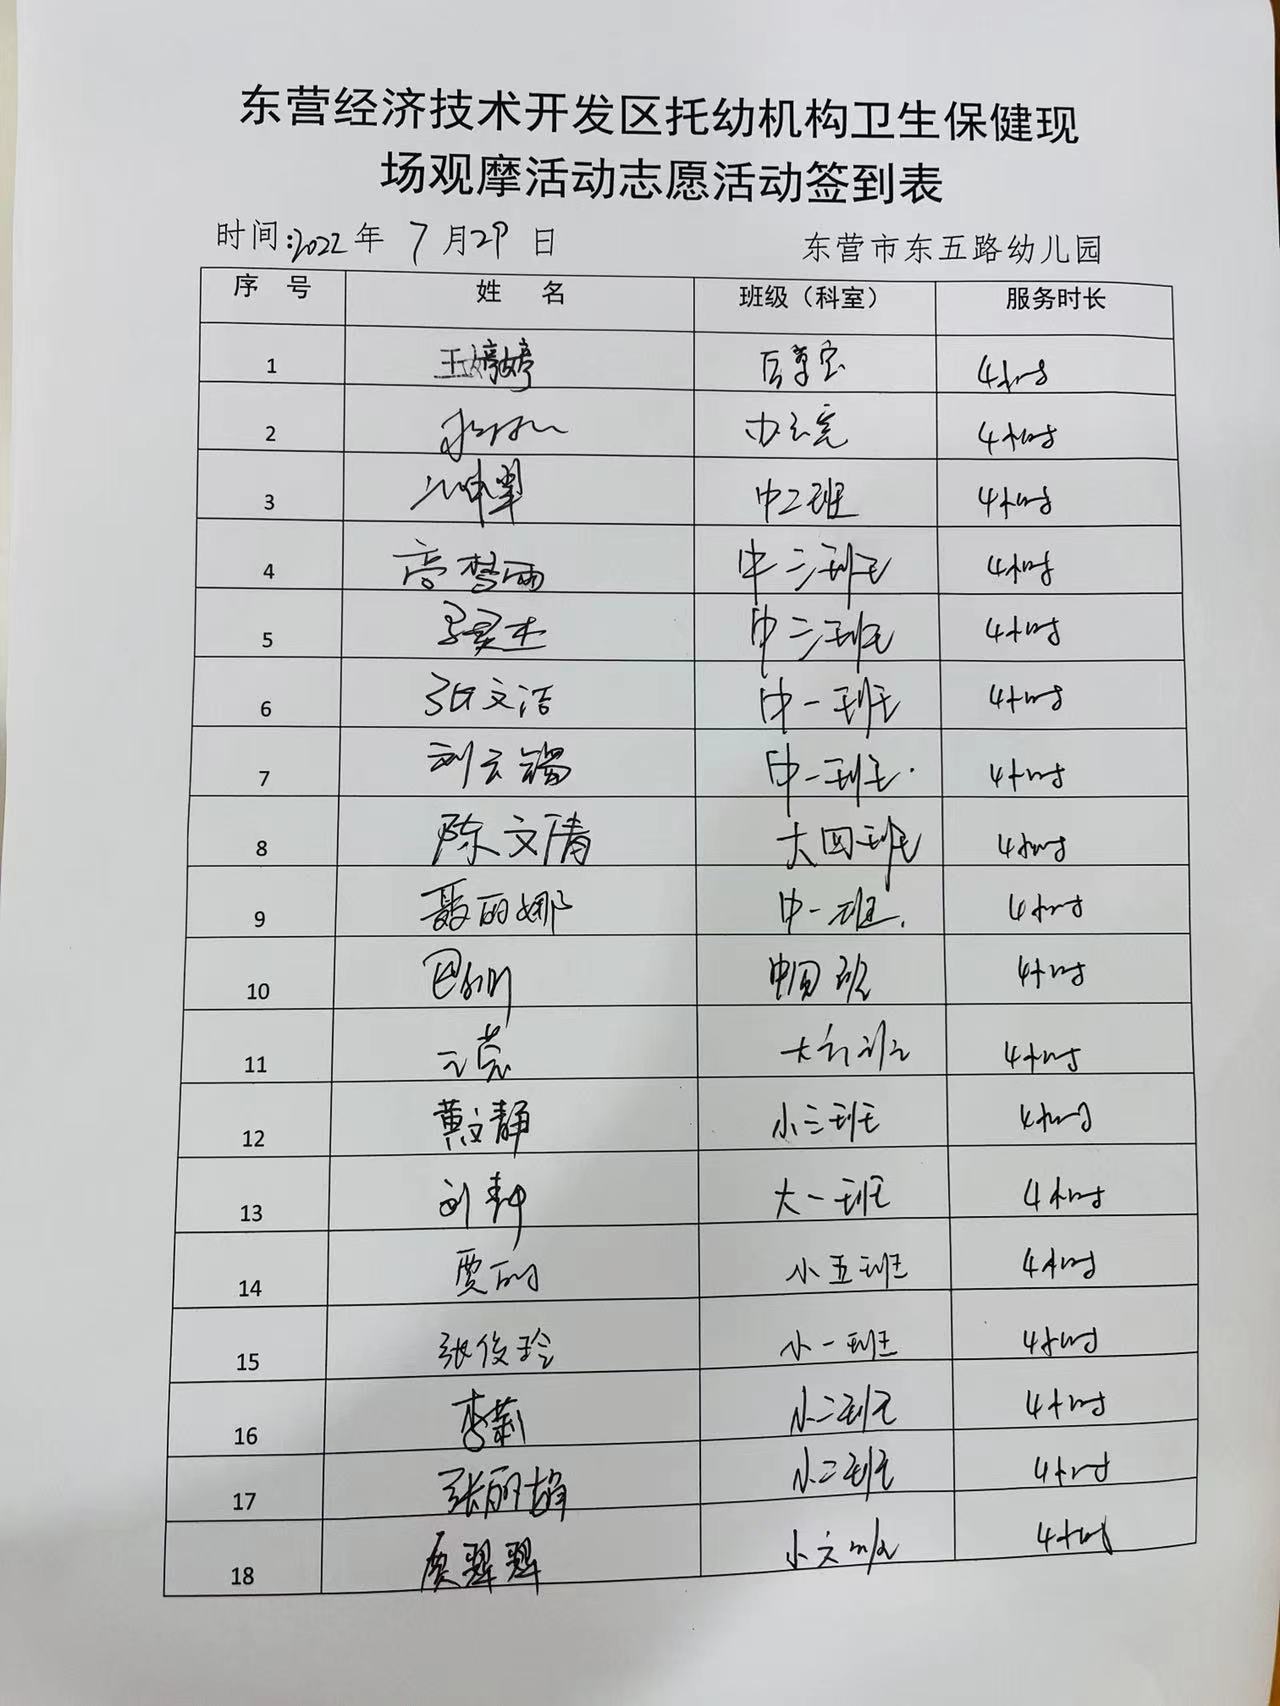 东营经济技术开发区托幼机构卫生保健现
场观摩活动志愿活动签到表
时间:2022年 7月29日 东营市东五路幼儿园
序 号 姓 名 班级（科室） 服务时长
1 王婷婷 4小时
2 办公室 4小时
3 中二班 4小时
4 高梦雨 中三班 4小时
5 中三班 4小时
6 张文洁 中一班 4小时
7 刘云锡 中一班 4小时
8 陈文清 大四班 4小时
9 聂丽娜 中一班 4小时
10 中四班 4小时
11 4小时
12 黄文静 小三班 4小时
13 刘静 大一班 4小时
14 贾丽 小五班 4小时
15 张俊玲 小一班 4小时
16 李莉 小二班 4小时
17 张丽娟 小二班 4小时
18 4小时